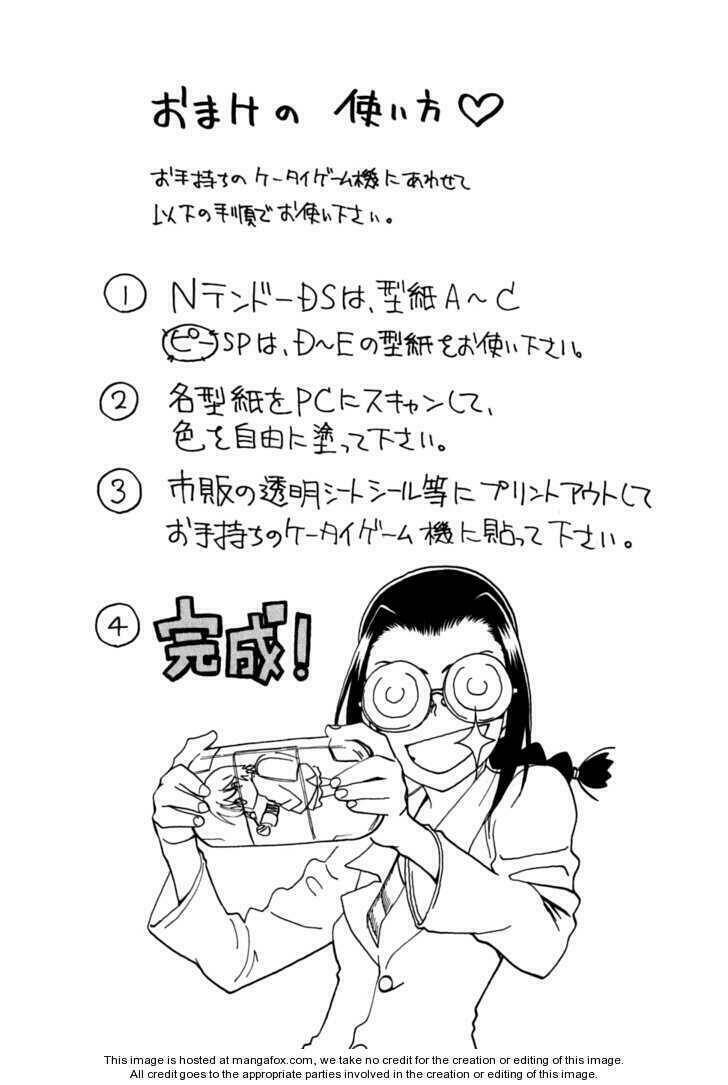 おまけの 使い方♡
お手持ちのケータイゲーム機にあわせて
以下の手順でお使い下さい。
① NテンドーDSは、型紙A～C
ピーSPは、D～Eの型紙をお使い下さい。
② 各型紙をPCにスキャンして、
色を自由に塗って下さい。
③ 市販の透明シートシール等にプリントアウトして
お手持ちのケータイゲーム機に貼って下さい。
④ 完成!
This image is hosted at mangafox.com, we take no credit for the creation or editing of this image.
All credit goes to the appropriate parties involved in the creation or editing of this image.